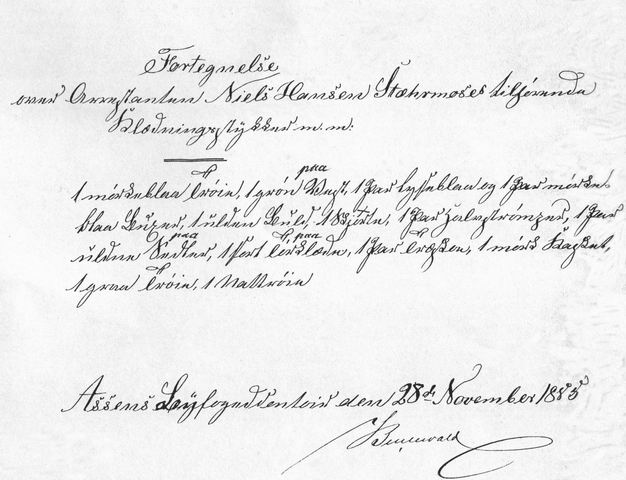 Fortegnelse
over Arrestanten Niels Hansen Stærmoses tilhørende
Klædningsstykker m. m.
paa
1 mørkeblaa Trøie, 1 grøn Vest, 1 Par lyseblaa og 1 Par mørke
blaa Buxer, 1 ulden, 1 Skjorte, 1 Par Halvstrømper, 1 Par
paa paa
ulden Sokker, 1 sort Tørklæde, 1 Par Træskoe, 1 mørk Kasket,
1 graa Trøie, 1 Nattrøie
Assens Byfogedcontoir den 28de November 1885